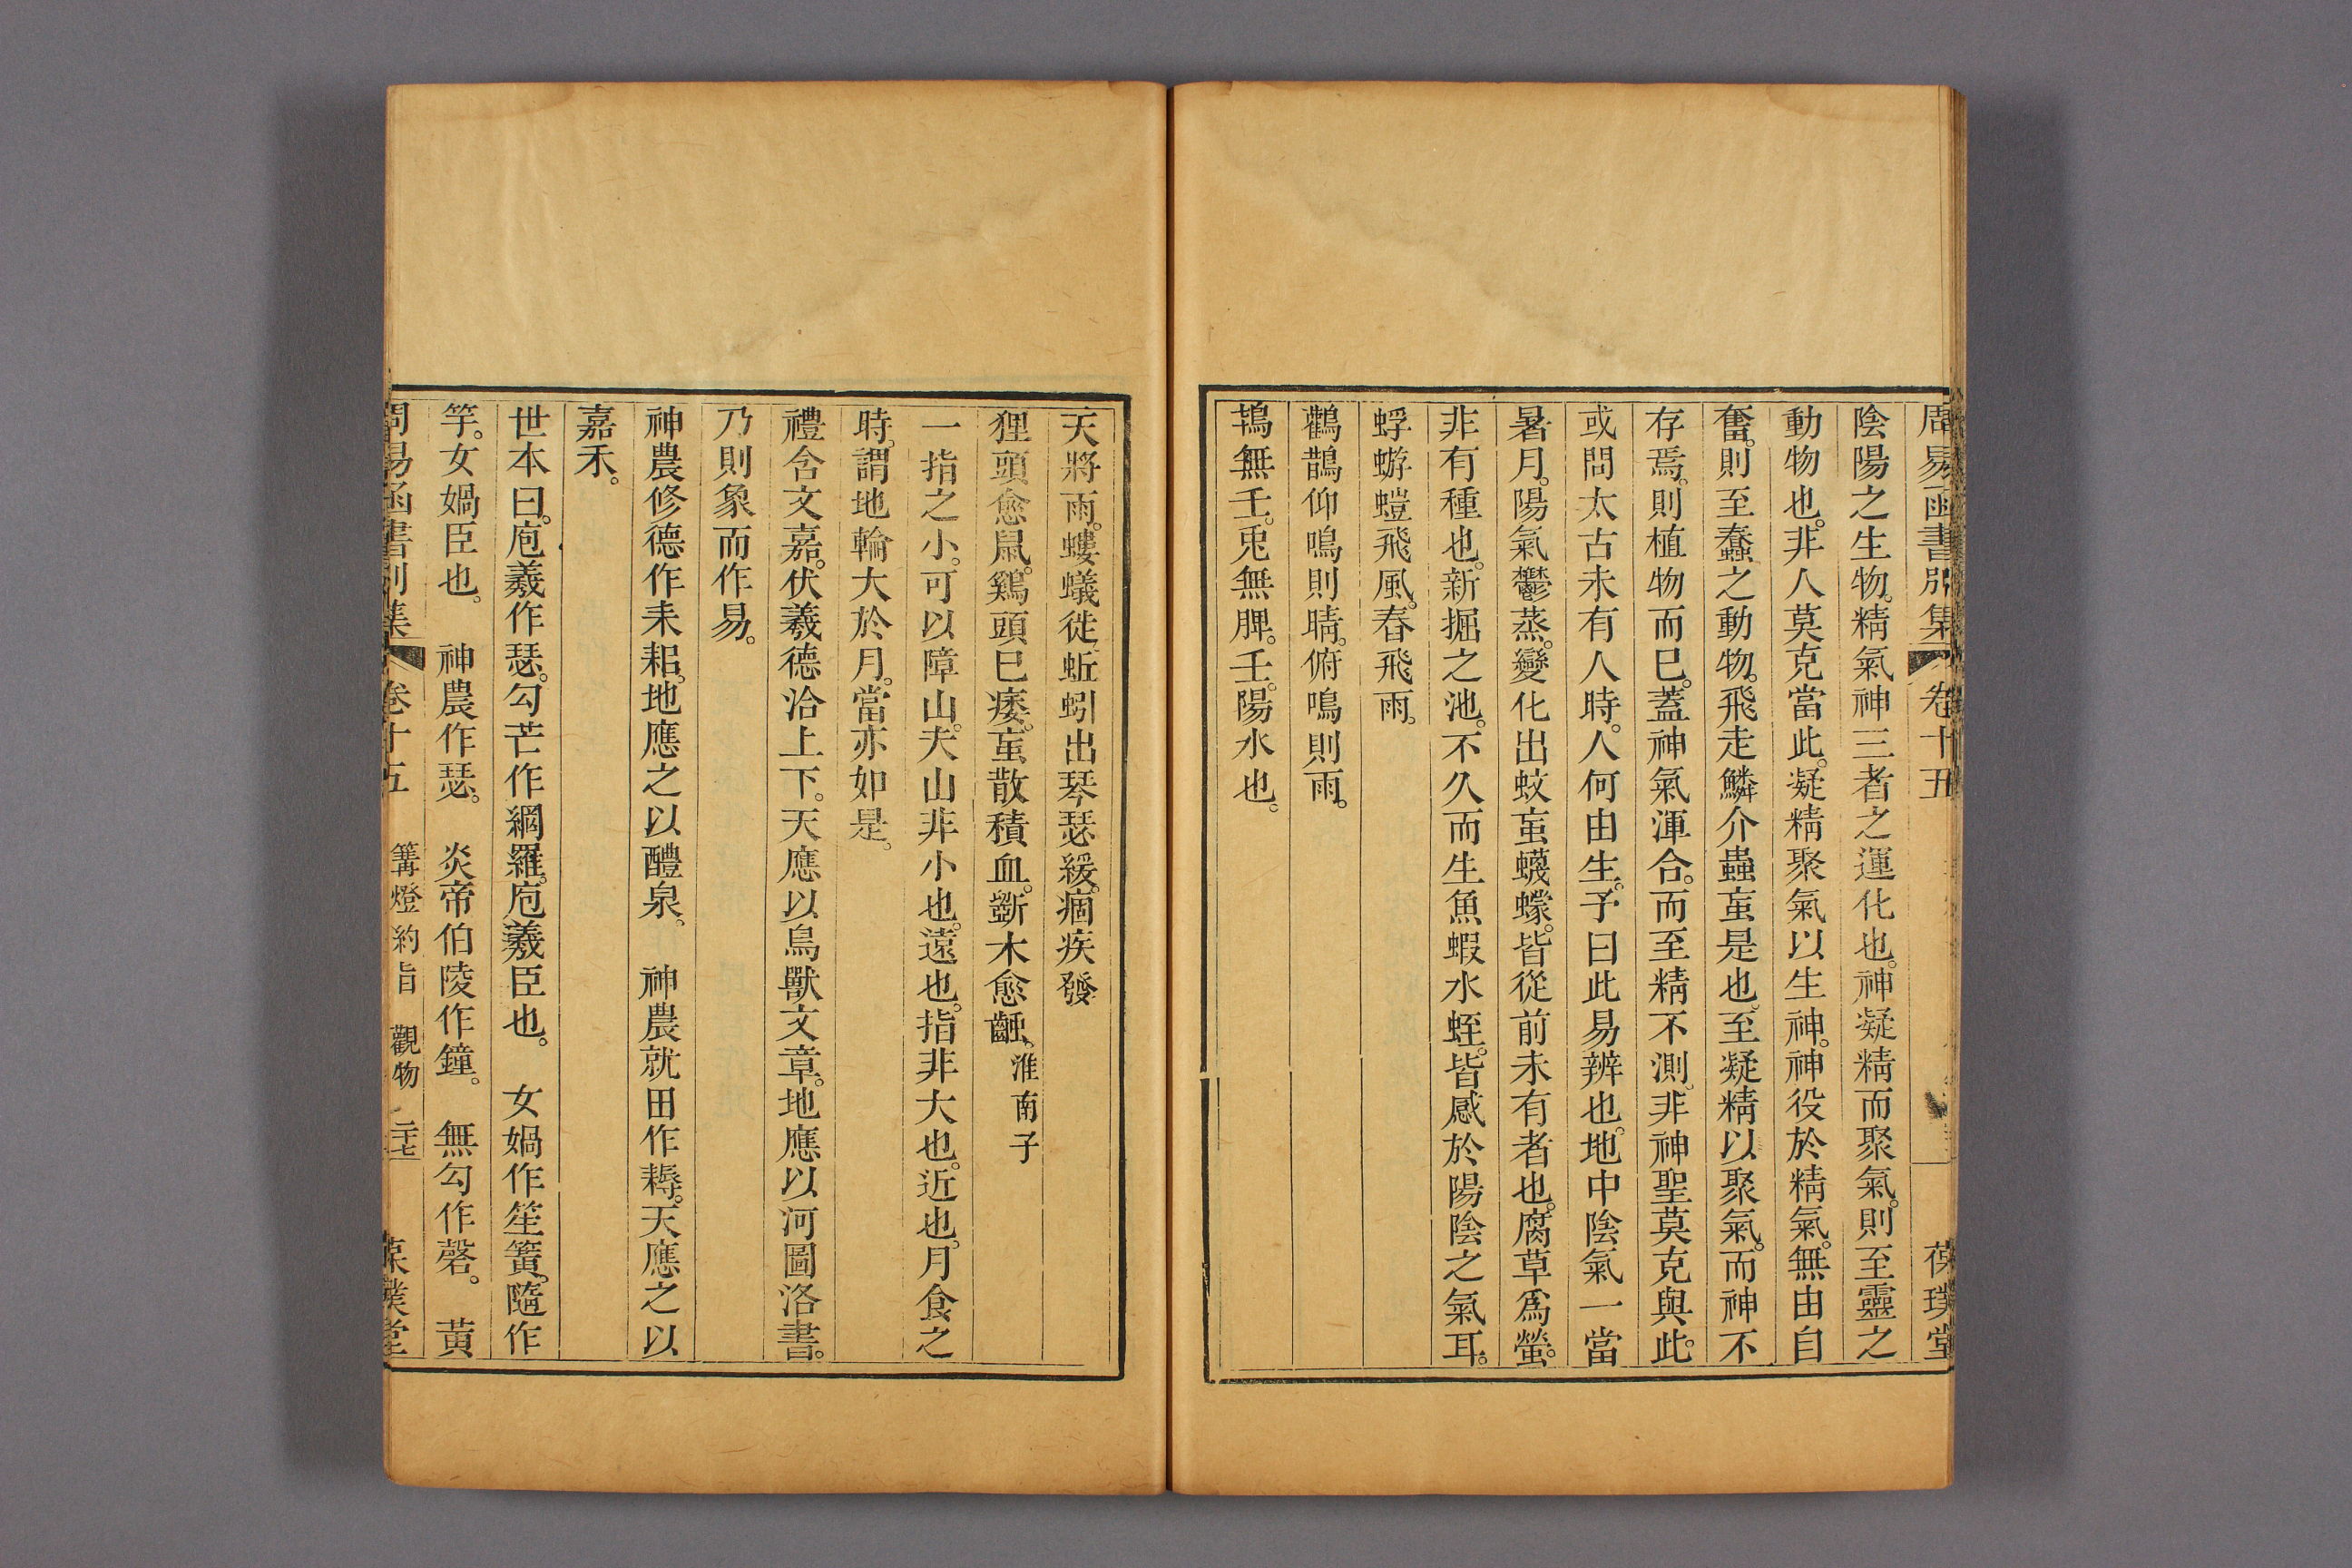 周易函書別集 卷十五 葆璞堂
陰陽之生物。精氣神三者之運化也。神凝精而聚氣。則至靈之
動物也。非人莫克當此。凝精聚氣以生神。神役於精氣。無由自
奮。則至蠢之動物。飛走鱗介蟲䖟是也。至凝精以聚氣。而神不
存焉。則植物而已。蓋神氣渾合。而至精不測。非神聖莫克與此。
或問太古未有人時。人何由生。予曰此易辨也。地中陰氣一當
暑月。陽氣鬱蒸。變化出蚊䖟蠛蠓。皆從前未有者也。腐草爲螢。
非有種也。新掘之池。不久而生魚蝦水蛭。皆感於陽陰之氣耳。
蜉蝣螘飛風。春飛雨。
鸛鵲仰鳴則晴。俯鳴則雨。
鴇無壬。兎無脾。壬。陽水也。
天將雨。螻蟻徙。蚯蚓出琴瑟緩。痼疾發
狸頭愈鼠。鷄頭已瘻。䖟散積血。斵木愈齲。淮南子
一指之小。可以障山。夫山非小也。遠也。指非大也。近也。月食之
時。謂地輪大於月。當亦如是。
禮含文嘉。伏羲德洽上下。天應以鳥獸文章。地應以河圖洛書。
乃則象而作易。
神農修德作耒耜。地應之以醴泉。 神農就田作耨。天應之以
嘉禾。
世本曰。庖羲作瑟。勾芒作網羅。庖羲臣也。 女媧作笙簧。隨作
竽。女媧臣也。 神農作瑟。 炎帝伯陵作鐘。 無勾作磬。 黃
周易函書別集 卷十五 篝燈約旨 觀物 二十七 葆璞堂